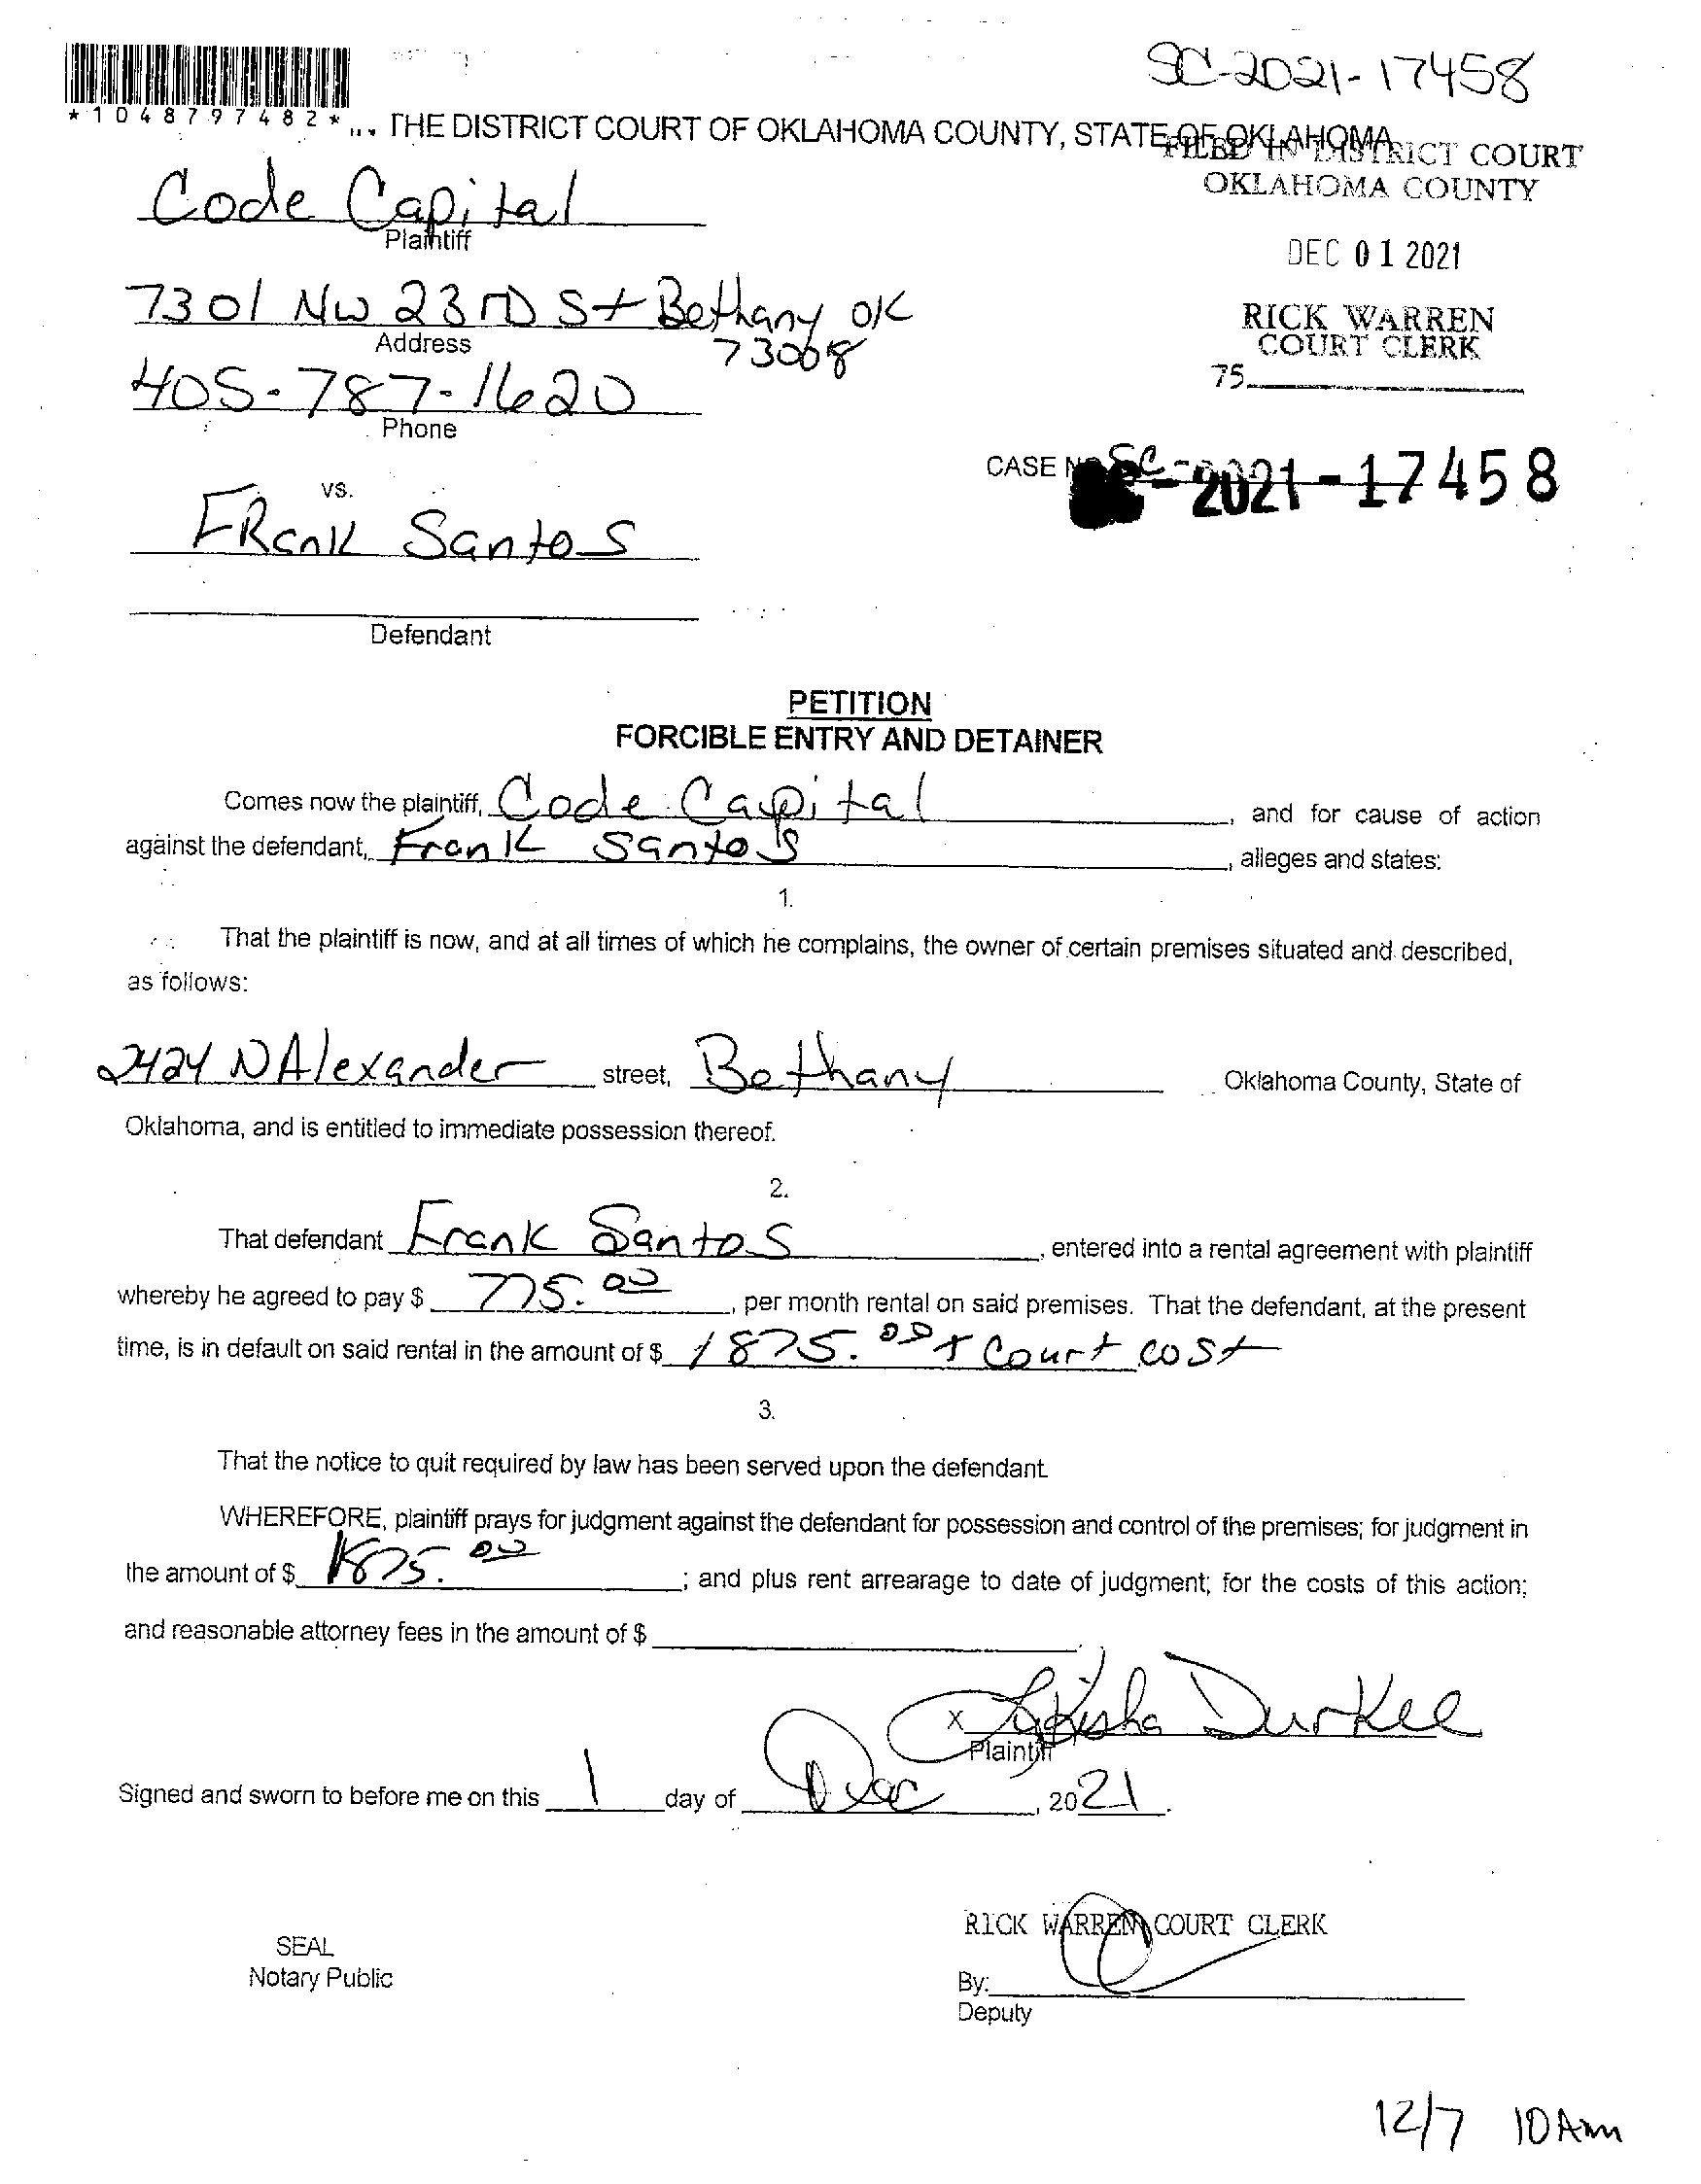 SC-2021-17458
*1048797482*
THE DISTRICT COURT OF OKLAHOMA COUNTY, STATE OF OKLAHOMA
FILED IN DISTRICT COURT
OKLAHOMA COUNTY
Code Capital
Plaintiff
DEC 01 2021
7301 NW 23RD St Bethany OK
73008
Address
RICK WARREN
COURT CLERK
75
405-787-1620
Phone
CASE NO. SC-2021-17458
vs.
FRank Santos
Defendant
PETITION
FORCIBLE ENTRY AND DETAINER
Comes now the plaintiff, Code Capital, and for cause of action
against the defendant, Frank Santos, alleges and states:
1.
That the plaintiff is now, and at all times of which he complains, the owner of certain premises situated and described,
as follows:
2424 N Alexander street, Bethany Oklahoma County, State of
Oklahoma, and is entitled to immediate possession thereof.
2.
That defendant Frank Santos, entered into a rental agreement with plaintiff
whereby he agreed to pay $ 775.00, per month rental on said premises. That the defendant, at the present
time, is in default on said rental in the amount of $ 1875.00 + Court cost
3.
That the notice to quit required by law has been served upon the defendant.
WHEREFORE, plaintiff prays for judgment against the defendant for possession and control of the premises; for judgment in
the amount of $ 1875.00; and plus rent arrearage to date of judgment; for the costs of this action;
and reasonable attorney fees in the amount of $
X Durkee
Plaintiff
Signed and sworn to before me on this 1 day of Dec, 2021.
RICK WARREN COURT CLERK
SEAL
Notary Public
By:
Deputy
12/7 10Am